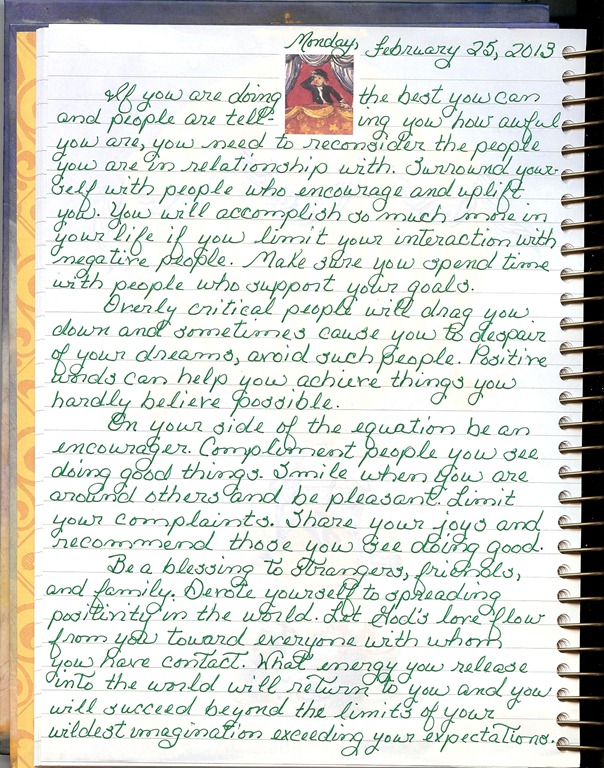 Monday, February 25, 2013
If you are doing the best you can
and people are tell- ing you how awful
you are, you need to reconsider the people
you are in relationship with. Surround your-
self with people who encourage and uplift
you. You will accomplish so much more in
your life if you limit your interaction with
negative people. Make sure you spend time
with people who support your goals.
Overly critical people will drag you
down and sometimes cause you to despair
of your dreams, avoid such people. Positive
words can help you achieve things you
hardly believe possible.
On your side of the equation be an
encourager. Compliment people you see
doing good things. Smile when you are
around others and be pleasant. Limit
your complaints. Share your joys and
recommend those you see doing good.
Be a blessing to strangers, friends,
and family. Devote yourself to spreading
positivity in the world. Let God's love flow
from you toward everyone with whom
you have contact. What energy you release
into the world will return to you and you
will succeed beyond the limits of your
wildest imagination exceeding your expectations.